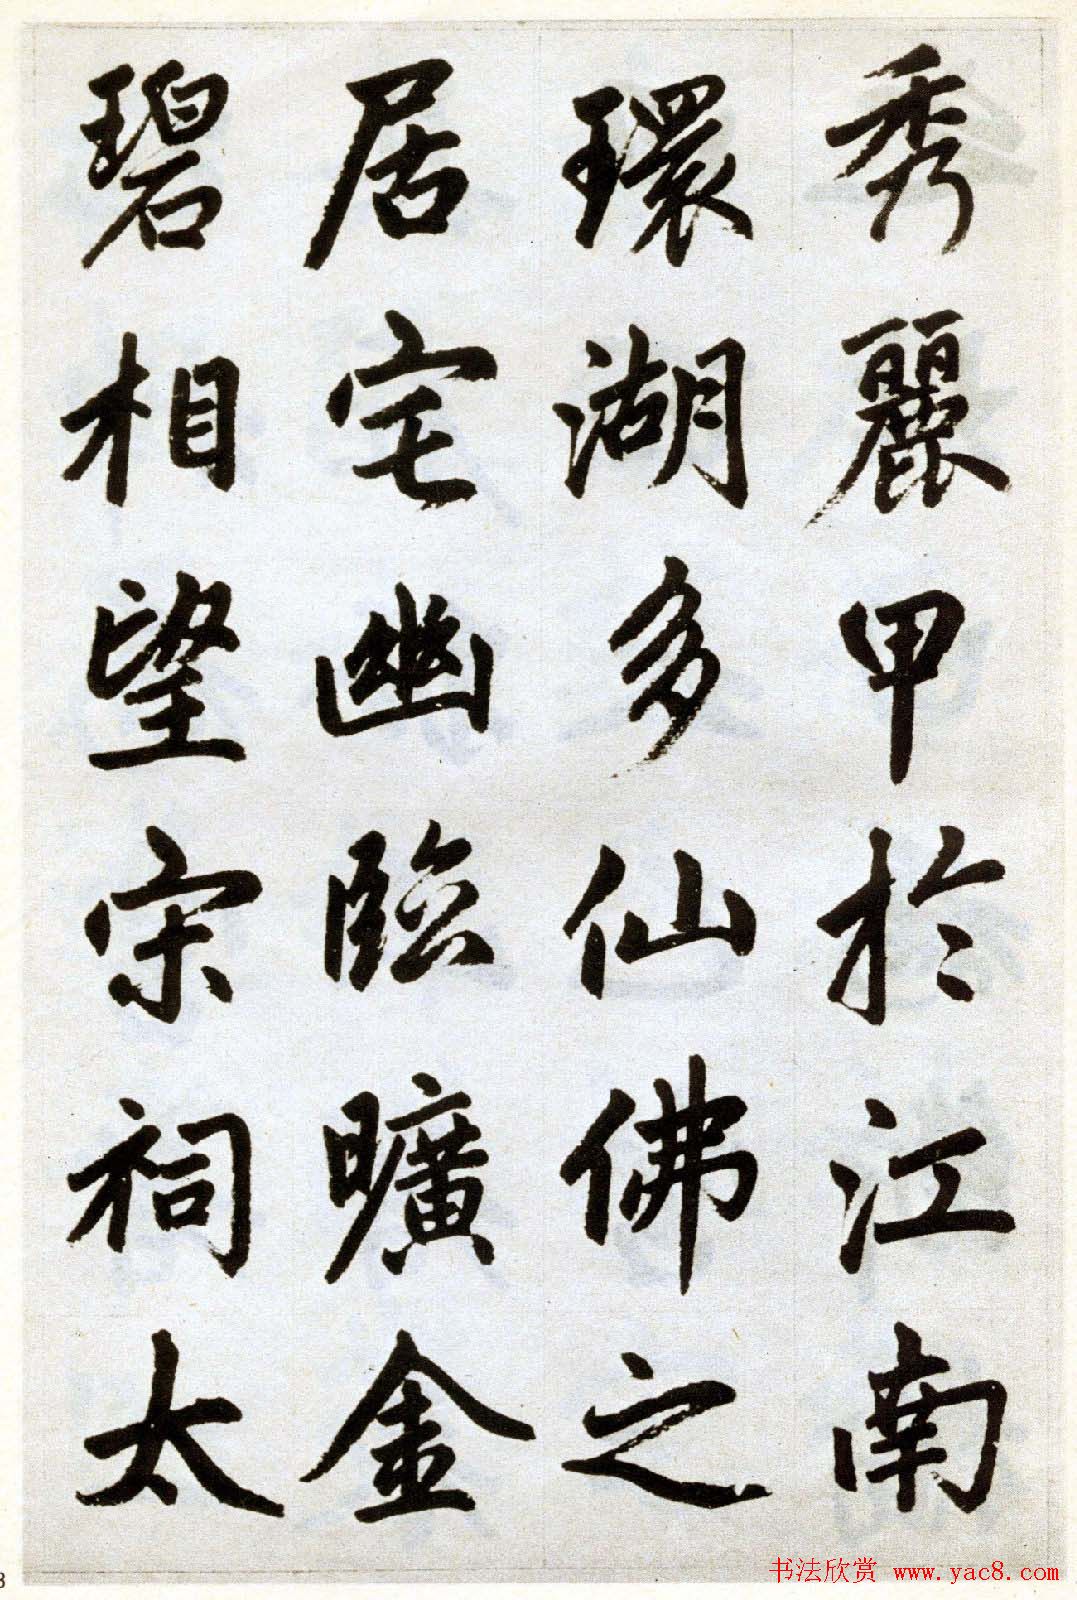 秀麗甲於江南
環湖多仙佛之
居宅幽臨曠金
碧相望宋祠太
书法欣赏 www.yac8.com